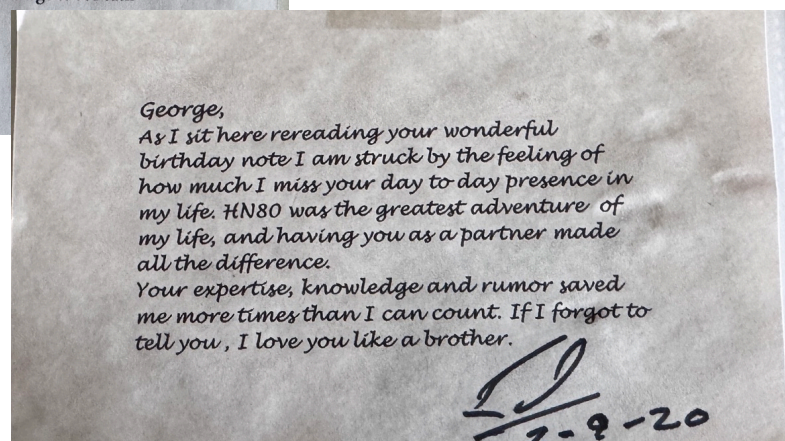 George,
As I sit here rereading your wonderful
birthday note I am struck by the feeling of
how much I miss your day to day presence in
my life. HN80 was the greatest adventure of
my life, and having you as a partner made
all the difference.
Your expertise, knowledge and rumor saved
me more times than I can count. If I forgot to
tell you, I love you like a brother.